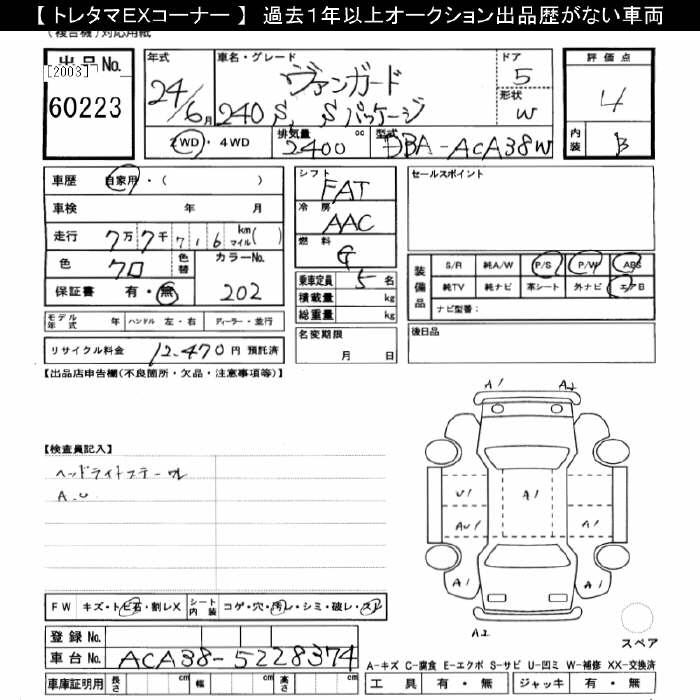 【トレタマEXコーナー】 過去1年以上オークション出品歴がない車両
(複合機)対応用紙
出品No.
[2003]
60223
年式
24/6月
車名・グレード
ヴァンガード
240S, Sパッケージ
ドア
5
形状
W
評価点
4
内装
B
2WD・4WD
排気量 2400 cc
型式 DBA-ACA38W
車歴 自家用・( )
車検 年 月
走行 7万7千716 km マイル( )
色 クロ 色替 カラーNo. 202
保証書 有・無
モデル年式 年 ハンドル 左・右 ディーラー・並行
リサイクル料金 12,470円 預託済
シフト
FAT
冷房
AAC
燃料
G
乗車定員 5 名
積載量 kg
総重量 kg
名変期限
月 日
セールスポイント
装備品
S/R 純A/W P/S P/W ABS
純TV 純ナビ 革シート 外ナビ エアB
ナビ型番:
後日品
【出品店申告欄(不良箇所・欠品・注意事項等)】
【検査員記入】
ヘッドライトステー
A.U
A1 A2
U1 A1
AU1 A1
A1 A1
A2
スペア
FW キズ・トビ石・割レX シート内装 コゲ・穴・汚レ・シミ・破レ・スレ
登録No.
車台No. ACA38-5228374
車庫証明用 長さ cm 幅 cm 高さ cm
A-キズ C-腐食 E-エクボ S-サビ U-凹ミ W-補修 XX-交換済
工具 有・無 ジャッキ 有・無